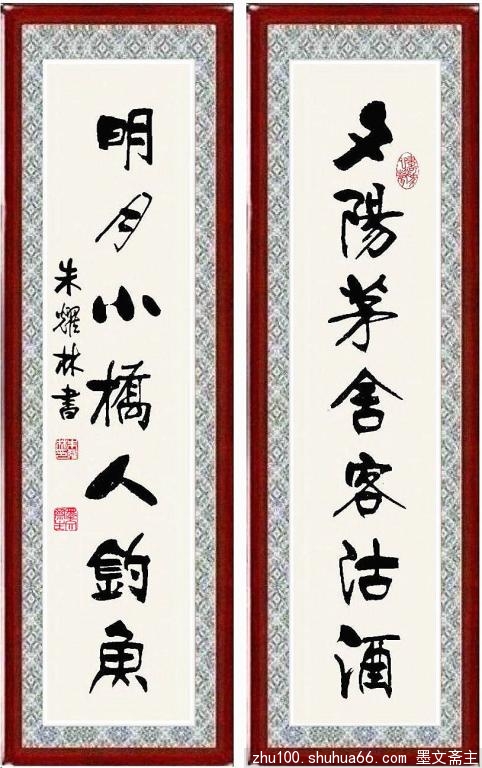 夕陽茅舍客沽酒
明月小橋人釣魚
朱耀林書
zhu100.shuhua66.com 墨文斋主